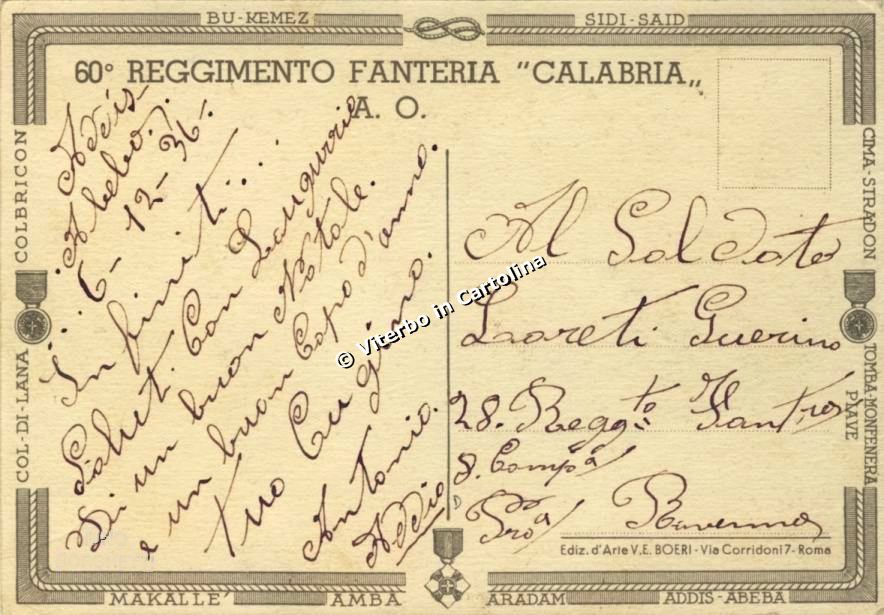 BU-KEMEZ
SIDI-SAID
60° REGGIMENTO FANTERIA "CALABRIA„
A. O.
COLBRICON
COL-DI-LANA
CIMA-STRADON
TOMBA-MONFENERA
PIAVE
Addis
Abeba.
6-12-36.
Infiniti....
Saluti Con L'augurio
Di un buon Natale.
e un buon Capo d'anno.
tuo Cugino.
Antonio.
Addio
Al Soldato
Loreti Guerino
28. Regg.to Fantria
8. Compa
D
Proa Ravenna
© Viterbo in Cartolina
Ediz. d'Arte V. E. BOERI - Via Corridoni 7 - Roma
MAKALLE'
AMBA
ARADAM
ADDIS-ABEBA